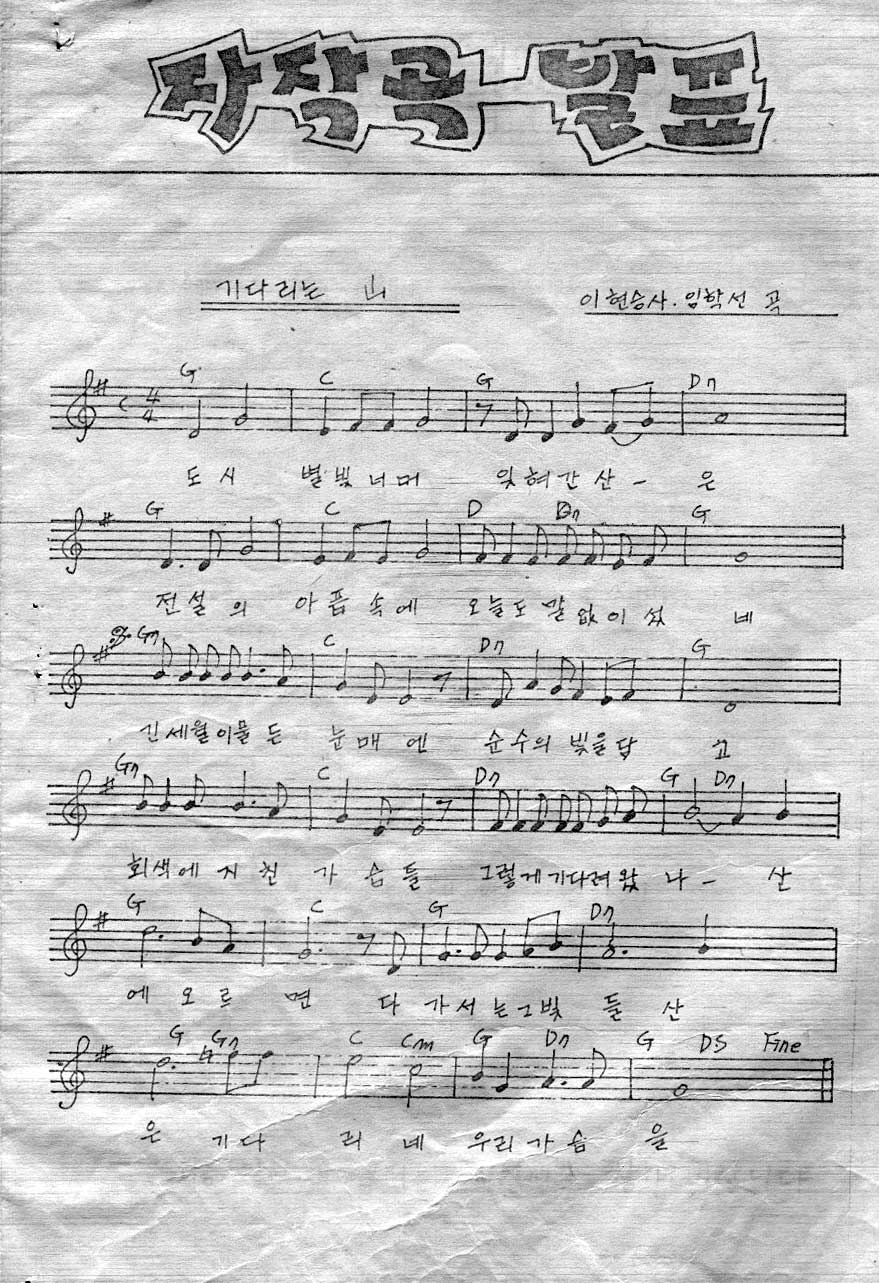 자작곡 발표
기다리는 山
이현승사. 임학선 곡
G C G D7
4
4
도시 별빛너머 잊혀간산- 은
G C D D7 G
전설의 아픔속에 오늘도말없이섰 네
G7 C D7 G
긴세월이물든 눈매엔 순수의빛을담 고
G7 C D7 G D7
회색에지친 가슴들 그렇게기다려왔나- 산
G C G D7
에오르 면 다가서는그빛 들 산
G G7 C Cm G D7 G DS Fine
은 기다 리 네 우리가슴 을